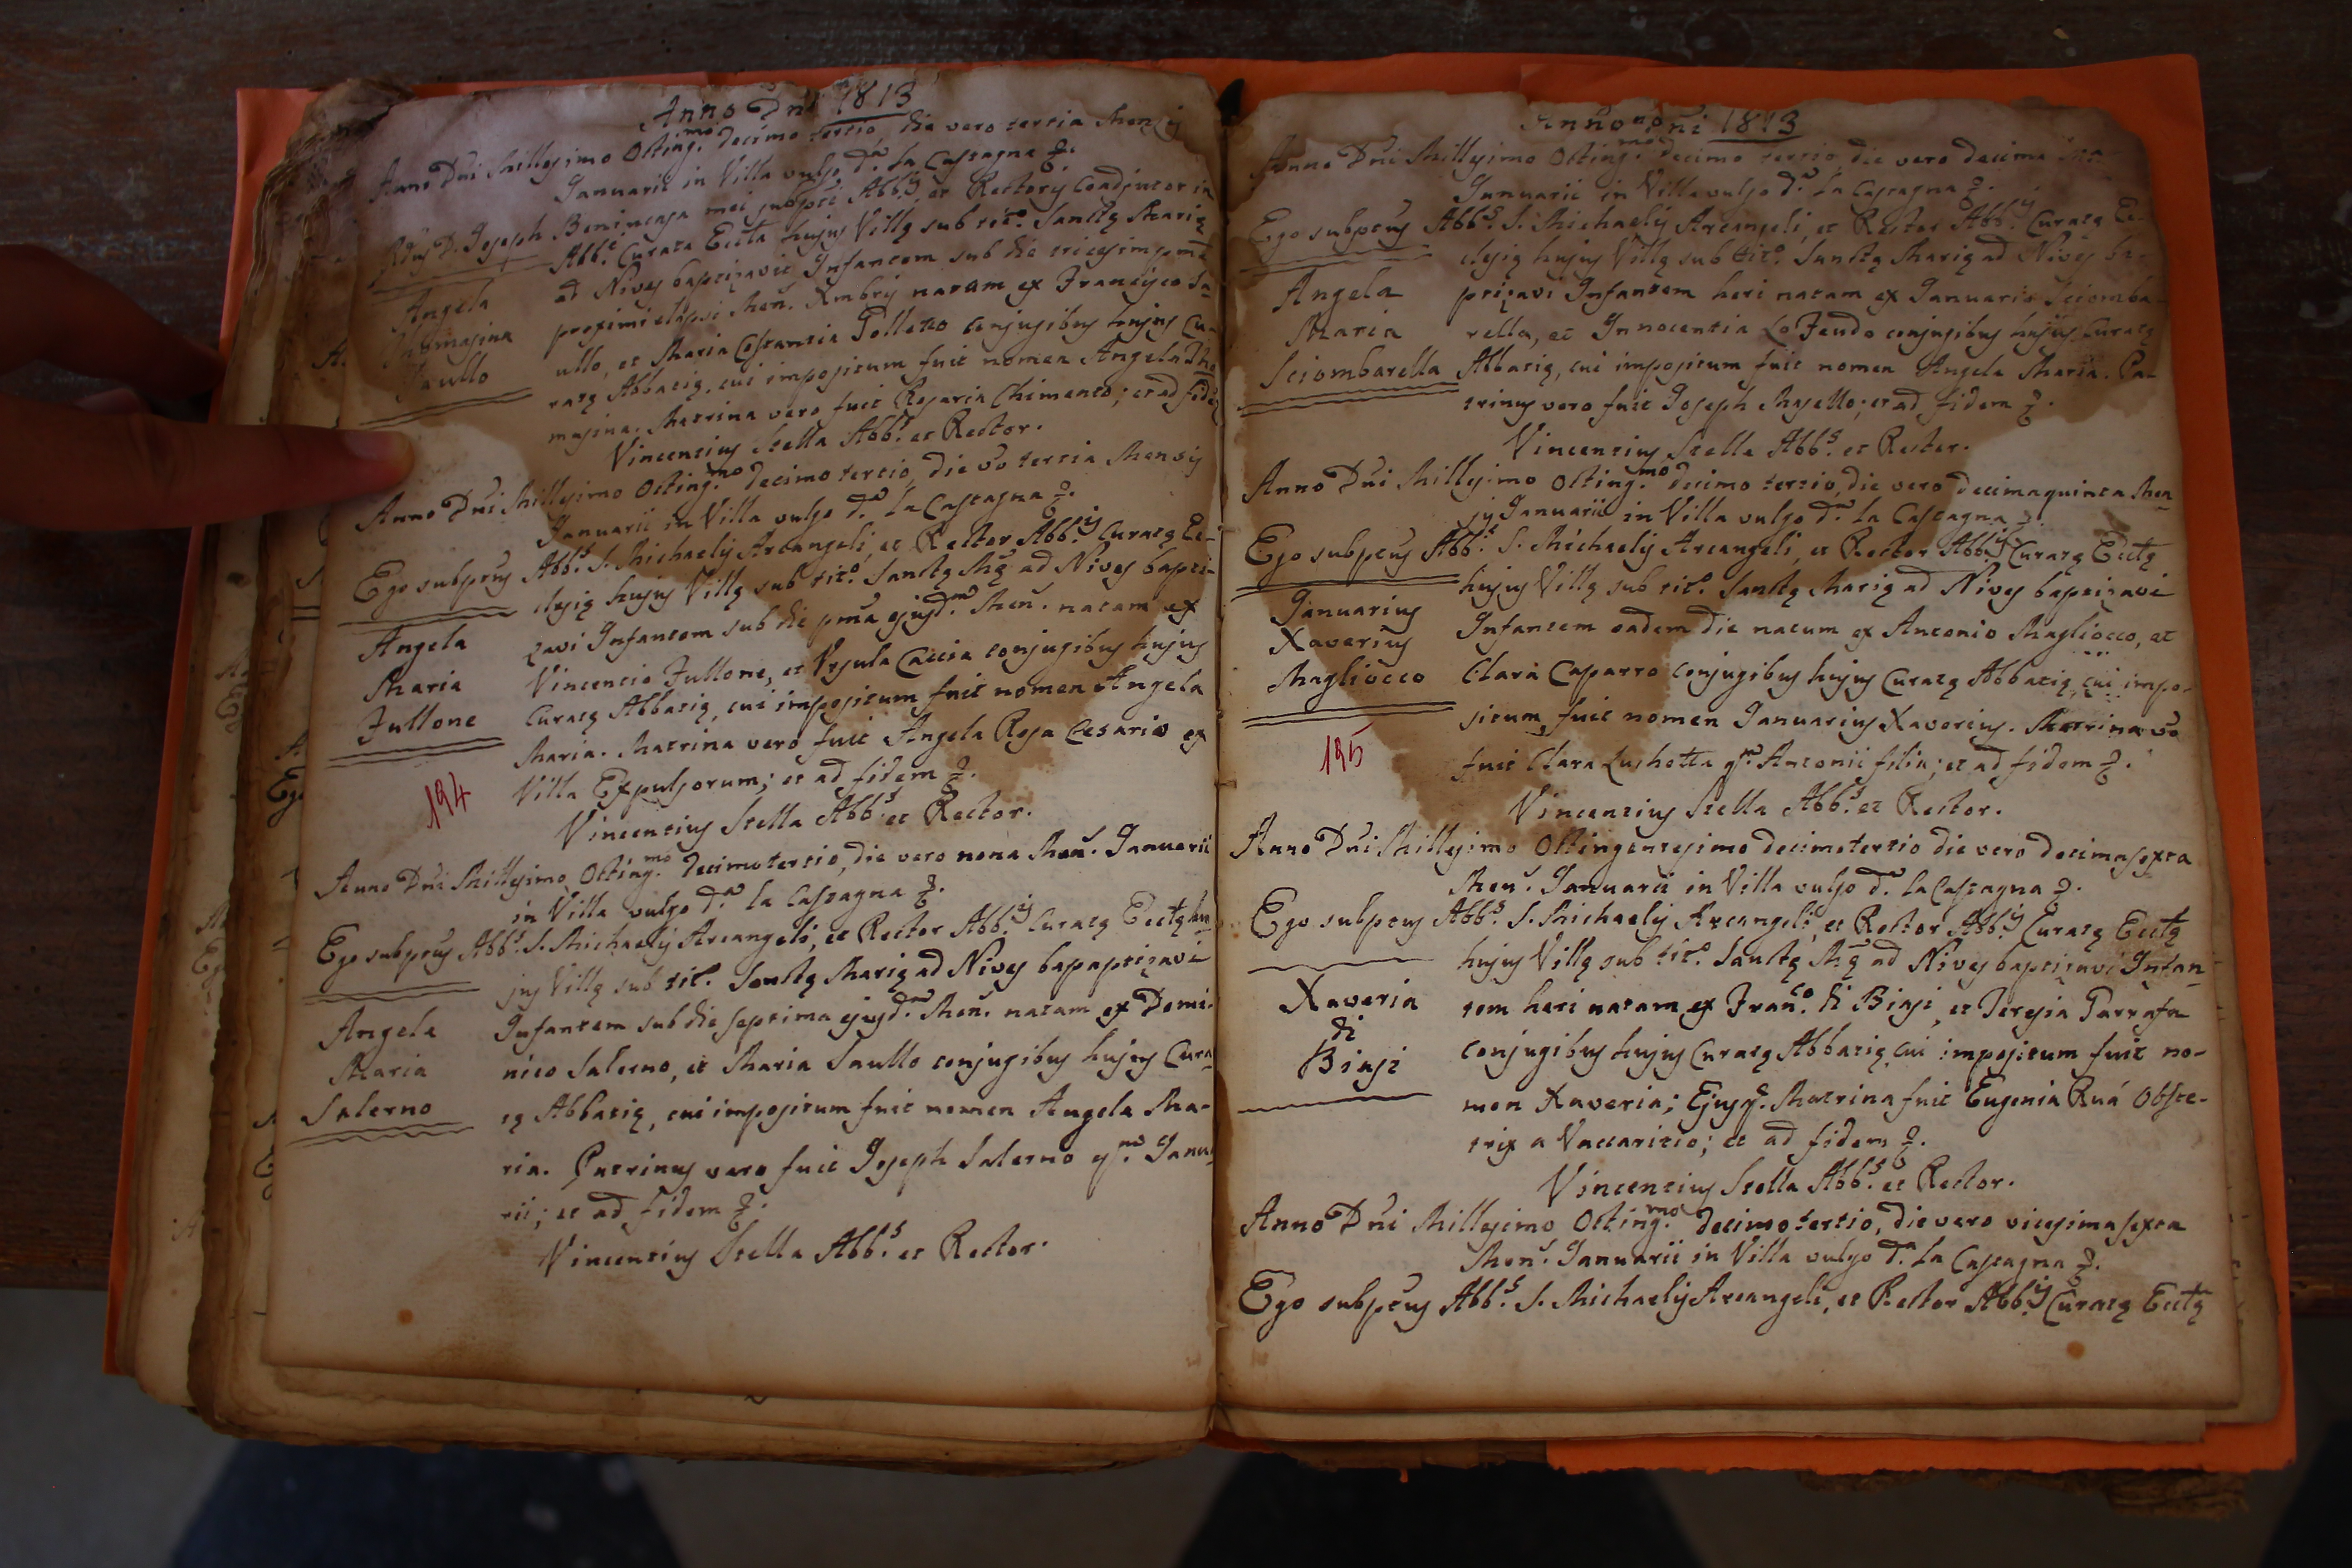 Anno Dni 1813
Anno Dni Millesimo Octing.mo decimo tertio, die vero tertia Mensis
Januarii in Villa vulgo d.a la Castagna &.
Rdus D. Joseph Benincasa mei subpti Abb.s, et Rectoris Coadjutor in
Abb.e Curata Eccla hujus Villę sub tit.o Sanctę Marię
ad Nives baptizavit Infantem sub die tricesimpma
proximi elapsi Men. Xmbris natam ex Francisco Sa-
ullo, et Maria Costantia Polletto conjugibus hujus Cu-
ratę Abbatię, cui impositum fuit nomen Angela Tho
masina. Matrina vero fuit Rosaria Chimento; et ad fidem
Vincentius Stella Abb.s et Rector.
Angela
Thomasina
Saullo
Anno Dni Millesimo Octing.mo decimo tertio, die vo tertia Mensis
Januarii in Villa vulgo d.a la Castagna &.
Ego subptus Abb.s S. Michaelis Arcangeli, et Rector Abb.is Curatę Ec-
clesię hujus Villę sub tit.o Sanctę Mę ad Nives bapti-
zavi Infantem sub die pma ejusd.m Men. natam ex
Vincentio Fullone, et Ursula Caccia conjugibus hujus
Curatę Abbatię, cui impositum fuit nomen Angela
Maria. Matrina vero fuit Angela Rosa Cesario ex
Villa Expulsorum; et ad fidem &.
Vincentius Stella Abb.s et Rector.
Angela
Maria
Fullone
194
Anno Dni Millesimo Octing.mo decimotertio, die vero nona Men. Januarii
in Villa vulgo d.a la Castagna &.
Ego subptus Abb.s S. Michaelis Arcangeli, et Rector Abb.is Curatę Ecclę hu-
jus Villę sub tit. Sanctę Marię ad Nives bapaptizavi
Infantem sub die septima ejusd.m Men. natam ex Domi-
nico Salerno, et Maria Saullo conjugibus hujus Cura-
tę Abbatię, cui impositum fuit nomen Angela Ma-
ria. Patrinus vero fuit Joseph Salerno q.m Janu-
rii; et ad fidem &.
Vincentius Stella Abb.s et Rector.
Angela
Maria
Salerno
Anno Dni 1813
Anno Dni Millesimo Octing.mo decimo tertio die vero decima
Januarii in Villa vulgo d.a la Castagna &.
Ego subptus Abb.s S. Michaelis Arcangeli, et Rector Abb.is Curatę Ec-
clesię hujus Villę sub tit.o Sanctę Marię ad Nives ba-
ptizavi Infantem heri natam ex Januario Sciomba-
rella, et Innocentia Lo Feudo conjugibus hujus Curatę
Abbatię, cui impositum fuit nomen Angela Maria. Pa-
trinus vero fuit Joseph Masello; et ad fidem &.
Vincentius Stella Abb.s et Rector.
Angela
Maria
Sciombarella
Anno Dni Millesimo Octing.mo decimo tertio, die vero decimaquinta Men-
sis Januarii in Villa vulgo d.a la Castagna &.
Ego subptus Abb.s S. Michaelis Arcangeli, et Rector Abb.is Curatę Ecclę
hujus Villę sub tit. Sanctę Marię ad Nives baptizavi
Infantem eadem die natum ex Antonio Magliocco, et
Clara Caparro conjugibus hujus Curatę Abbatię, cui impo-
situm fuit nomen Januarius Xaverius. Matrina vo
fuit Clara Luchetta q.m Antonii filia; et ad fidem &.
Vincentius Stella Abb.s et Rector.
Januarius
Xaverius
Magliocco
195
Anno Dni Millesimo Octingentesimo decimotertio die vero decimasexta
Men. Januarii in Villa vulgo d.a la Castagna &.
Ego subptus Abb.s S. Michaelis Arcangeli, et Rector Abb.is Curatę Ecclę
hujus Villę sub tit.o Sanctę Mę ad Nives baptizavi Infan-
tem heri natam ex Fran.co di Biasi, et Teresia Parrafa
conjugibus hujus Curatę Abbatię, cui impositum fuit no-
men Xaveria; Ejusq. Matrina fuit Eugenia Ruá Obste-
trix a Vaccaritio; et ad fidem &.
Vincentius Stella Abb.s et Rector.
Xaveria
di
Biasi
Anno Dni Millesimo Octing.mo decimo tertio, die vero vicesimasexta
Men. Januarii in Villa vulgo d.a la Castagna &.
Ego subptus Abb.s S. Michaelis Arcangeli, et Rector Abb.is Curatę Ecclę